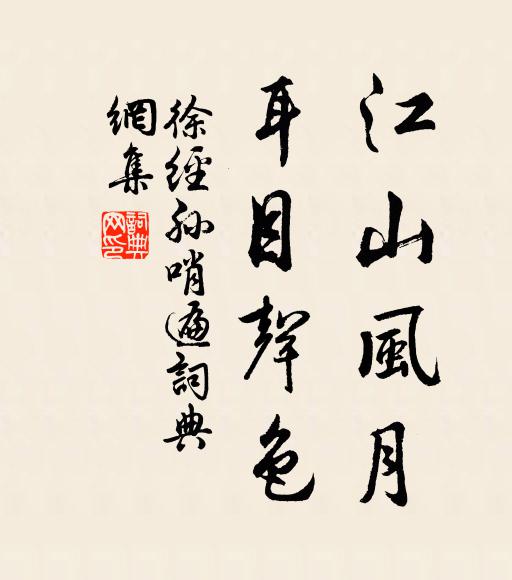 江山風月
耳目聲色
徐經孫哨遍詞典
網集
詞典
网印